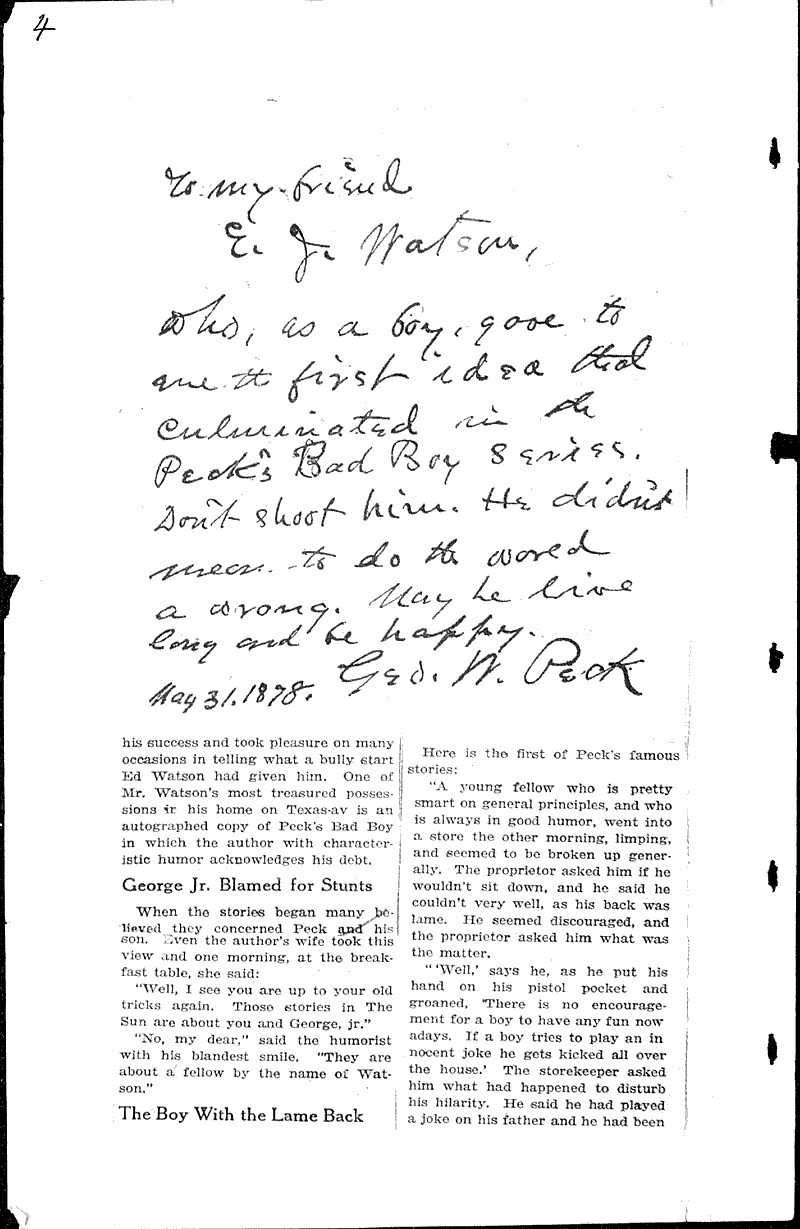 4
To my friend
E. J. Watson,
Who, as a boy, gave to
me the first idea that
culminated in the
Peck's Bad Boy series.
Don't shoot him. He didn't
mean to do the world
a wrong. May he live
long and be happy.
Geo. W. Peck
May 31. 1878.
his success and took pleasure on many
occasions in telling what a bully start
Ed Watson had given him. One of
Mr. Watson's most treasured posses-
sions in his home on Texas-av is an
autographed copy of Peck's Bad Boy
in which the author with character-
istic humor acknowledges his debt.
George Jr. Blamed for Stunts
When the stories began many be-
lieved they concerned Peck and his
son. Even the author's wife took this
view and one morning, at the break-
fast table, she said:
"Well, I see you are up to your old
tricks again. Those stories in The
Sun are about you and George, jr."
"No, my dear," said the humorist
with his blandest smile. "They are
about a fellow by the name of Wat-
son."
The Boy With the Lame Back
Here is the first of Peck's famous
stories:
"A young fellow who is pretty
smart on general principles, and who
is always in good humor, went into
a store the other morning, limping,
and seemed to be broken up gener-
ally. The proprietor asked him if he
wouldn't sit down, and he said he
couldn't very well, as his back was
lame. He seemed discouraged, and
the proprietor asked him what was
the matter.
"'Well,' says he, as he put his
hand on his pistol pocket and
groaned, 'There is no encourage-
ment for a boy to have any fun now
adays. If a boy tries to play an in
nocent joke he gets kicked all over
the house.' The storekeeper asked
him what had happened to disturb
his hilarity. He said he had played
a joke on his father and he had been